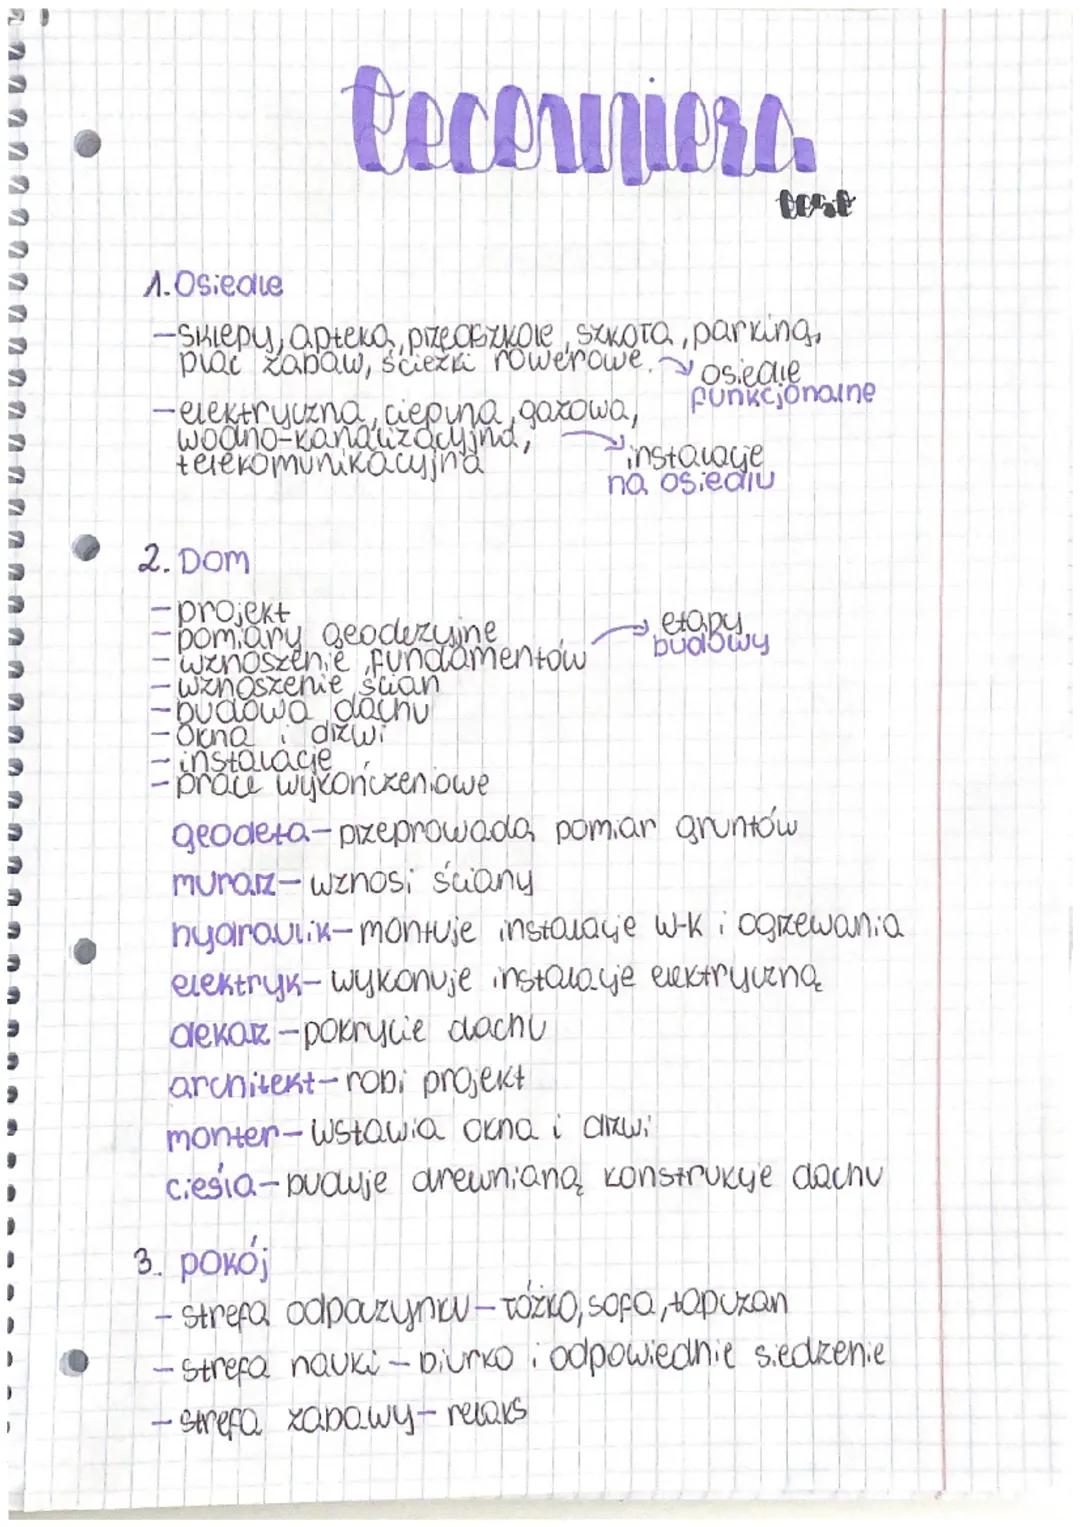 test
1. Osiedle
- sklepy, apteka, przedszkole, szkoła, parking,
plac zabaw, ścieżki rowerowe. → osiedle
funkcjonalne
- elektryczna, cieplna, gazowa,
wodno-kanalizacyjna, → instalacje
telekomunikacyjna
na osiedlu
2. Dom
- projekt
- pomiary geodezyjne → etapy
budowy
- wznoszenie fundamentów
- wznoszenie ścian
- budowa dachu
- okna i drzwi
- instalacje
- prace wykończeniowe
geodeta - przeprowada pomiar gruntów
murarz - wznosi ściany
hydraulik - montuje instalacje w-k i ogrzewania
elektryk - wykonuje instalacje elektryczną
dekarz - pokrycie dachu
architekt - robi projekt
monter - wstawia okna i drzwi
cieśla - buduje drewnianą konstrukcje dachu
3. pokój
- strefa odpoczynku - łóżko, sofa, tapczan
- strefa nauki - biurko i odpowiednie siedzenie
- strefa zabawy - relaks